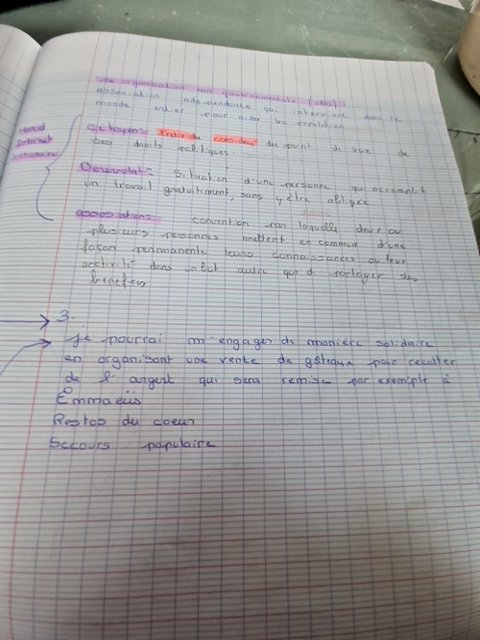 une organisation non gouvernementale (ONG):
association indépendante qui intervient dans le
monde entier pour aider les population
Citoyens: Individu considué du point de vue de
Internet
ses droits politiques.
Benevolat: Situation d'une personne qui accomplit
un travail gratuitement, sans y être obligée
association: convention par laquelle deux ou
plusieurs personnes mettent en commun d'une
façon permanente leurs connaissances ou leur
activité dans un but autre que de partager des
benefices
3.
Je pourrai m'engager de manière solidaire
en organisant une vente de gâteaux pour recolter
de l'argent qui sera remise par exemple à
Emmaeüs
Restos du coeur
Secours populaire